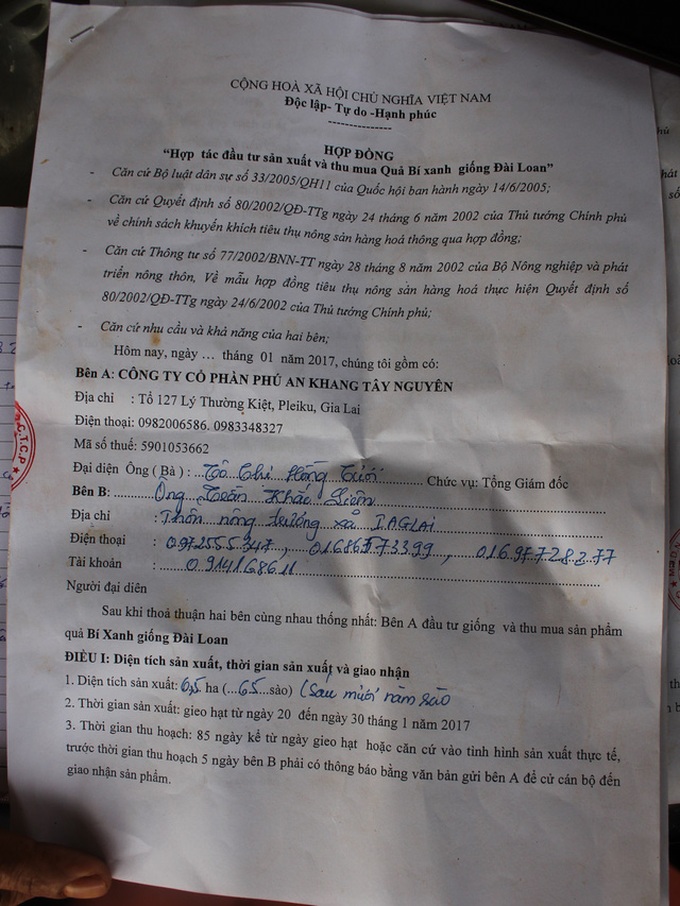 CỘNG HOÀ XÃ HỘI CHỦ NGHĨA VIỆT NAM
Độc lập- Tự do -Hạnh phúc
---------------
HỢP ĐỒNG
“Hợp tác đầu tư sản xuất và thu mua Quả Bí xanh giống Đài Loan”
- Căn cứ Bộ luật dân sự số 33/2005/QH11 của Quốc hội ban hành ngày 14/6/2005;
- Căn cứ Quyết định số 80/2002/QĐ-TTg ngày 24 tháng 6 năm 2002 của Thủ tướng Chính phủ
về chính sách khuyến khích tiêu thụ nông sản hàng hoá thông qua hợp đồng;
- Căn cứ Thông tư số 77/2002/BNN-TT ngày 28 tháng 8 năm 2002 của Bộ Nông nghiệp và phát
triển nông thôn, Về mẫu hợp đồng tiêu thụ nông sản hàng hoá thực hiện Quyết định số
80/2002/QĐ-TTg ngày 24/6/2002 của Thủ tướng Chính phủ;
- Căn cứ nhu cầu và khả năng của hai bên;
Hôm nay, ngày … tháng 01 năm 2017, chúng tôi gồm có:
Bên A: CÔNG TY CỔ PHẦN PHÚ AN KHANG TÂY NGUYÊN
Địa chỉ : Tổ 127 Lý Thường Kiệt, Pleiku, Gia Lai
Điện thoại: 0982006586. 0983348327
Mã số thuế: 5901053662
Đại diện Ông ( Bà ) : Tô Thị Hồng Tươi Chức vụ: Tổng Giám đốc
Bên B: Ông Trần Khắc Liêm
Địa chỉ : Thôn nông trường xã IAGLAI
Điện thoại : 0972555347, , 01697728277
Tài khoản : 0914168611
Người đại diên
Sau khi thoả thuận hai bên cùng nhau thống nhất: Bên A đầu tư giống và thu mua sản phẩm
quả Bí Xanh giống Đài Loan
ĐIỀU I: Diện tích sản xuất, thời gian sản xuất và giao nhận
1. Diện tích sản xuất: 6,5 ha (...65...sào) (Sáu mươi năm sào
2. Thời gian sản xuất: gieo hạt từ ngày 20 đến ngày 30 tháng 1 năm 2017
3. Thời gian thu hoạch: 85 ngày kể từ ngày gieo hạt hoặc căn cứ vào tình hình sản xuất thực tế,
trước thời gian thu hoạch 5 ngày bên B phải có thông báo bằng văn bản gửi bên A để cử cán bộ đến
giao nhận sản phẩm.
C.T.C.P